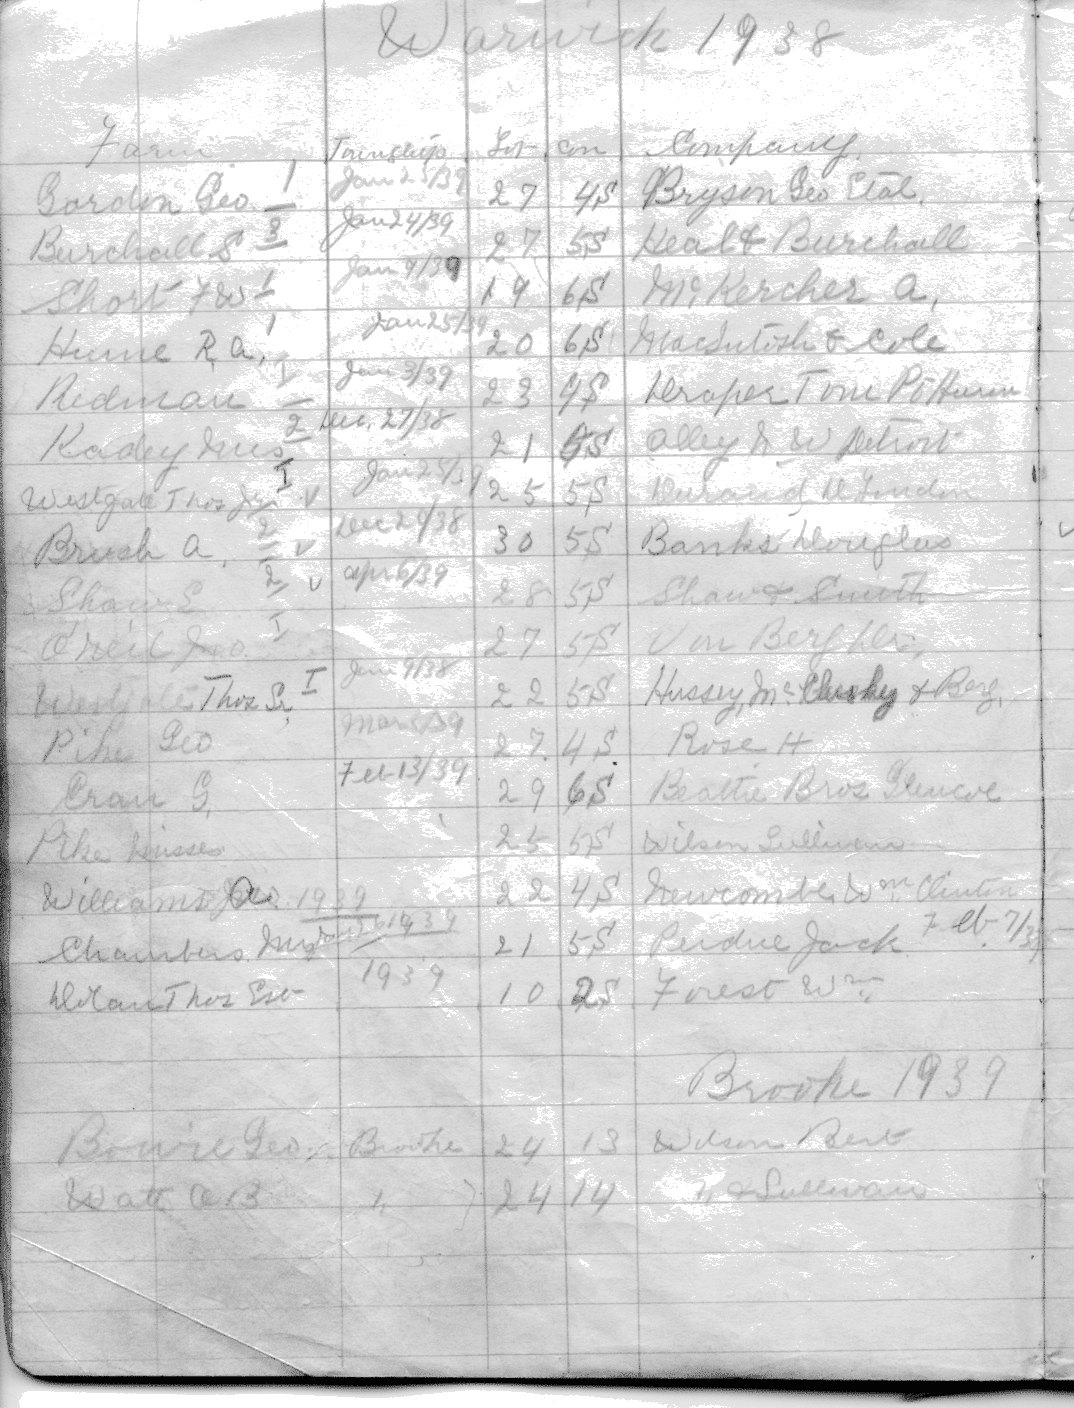 Warwick 1938
Farm Township Lot con Company
Gordon Geo 1 Jan 25/39 27 4S Bryson Geo Etal.
Burchall S 3 Jan 24/39 27 5S Heal & Burchall
Short F W 1 Jan 9/39 19 6S McKercher A.
Hume R. A. 1 Jan 25/39 20 6S MacIntosh & Cole
Redman I Jan 3/39 23 4S Draper Tom Pt Huron
Kadey Mrs 2 Dec. 27/38 21 5S Alley W Detroit
Westgate Thos Jr I v Jan 25/39 25 5S Durand London
Brush A. 2 v Dec 29/38 30 5S Banks Douglas
Shaw E 2 v Apr 6/39 28 5S Shaw & Smith
O'Neil Jno. I 27 5S Von Berg
Westgate Thos Sr. I Jan 9/38 22 5S Hussey, McClusky & Berg.
Pike Geo Mar 39 27 4S Rose H
Cran G. Feb 13/39 29 6S Beattie Bros Glencoe
Pike Misses 25 5S Wilson Sullivan
Williams Geo. 1939 22 4S Newcombe, Wm Clinton
Chambers Mrs Jan 26 1939 21 5S Perdue Jack Feb. 7/39
Dolan Thos Est 1939 10 2S Forest Wm
Brooke 1939
Bowie Geo. Brooke 24 13 Wilson Bert
Watt O.B " 24 14 " & Sullivan